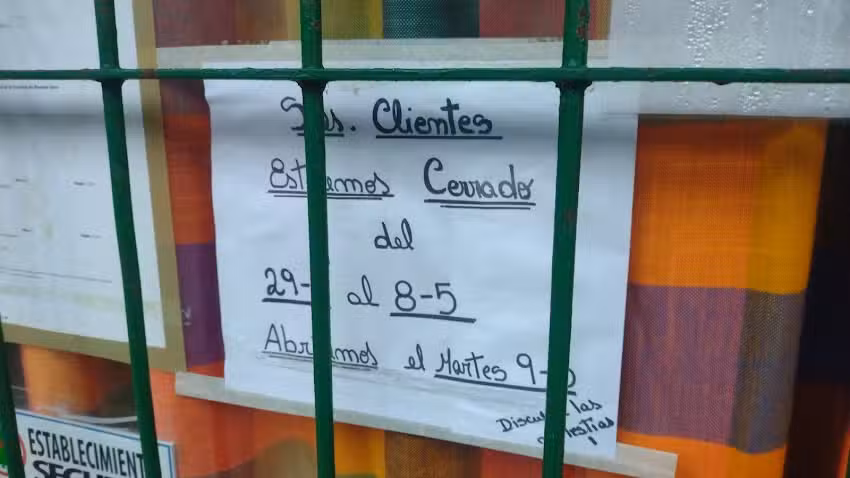 Srs. Clientes
Estamos Cerrado
del
29- al 8-5
Abrimos el Martes 9-5
Disculpe las
molestias
ESTABLECIMIENT